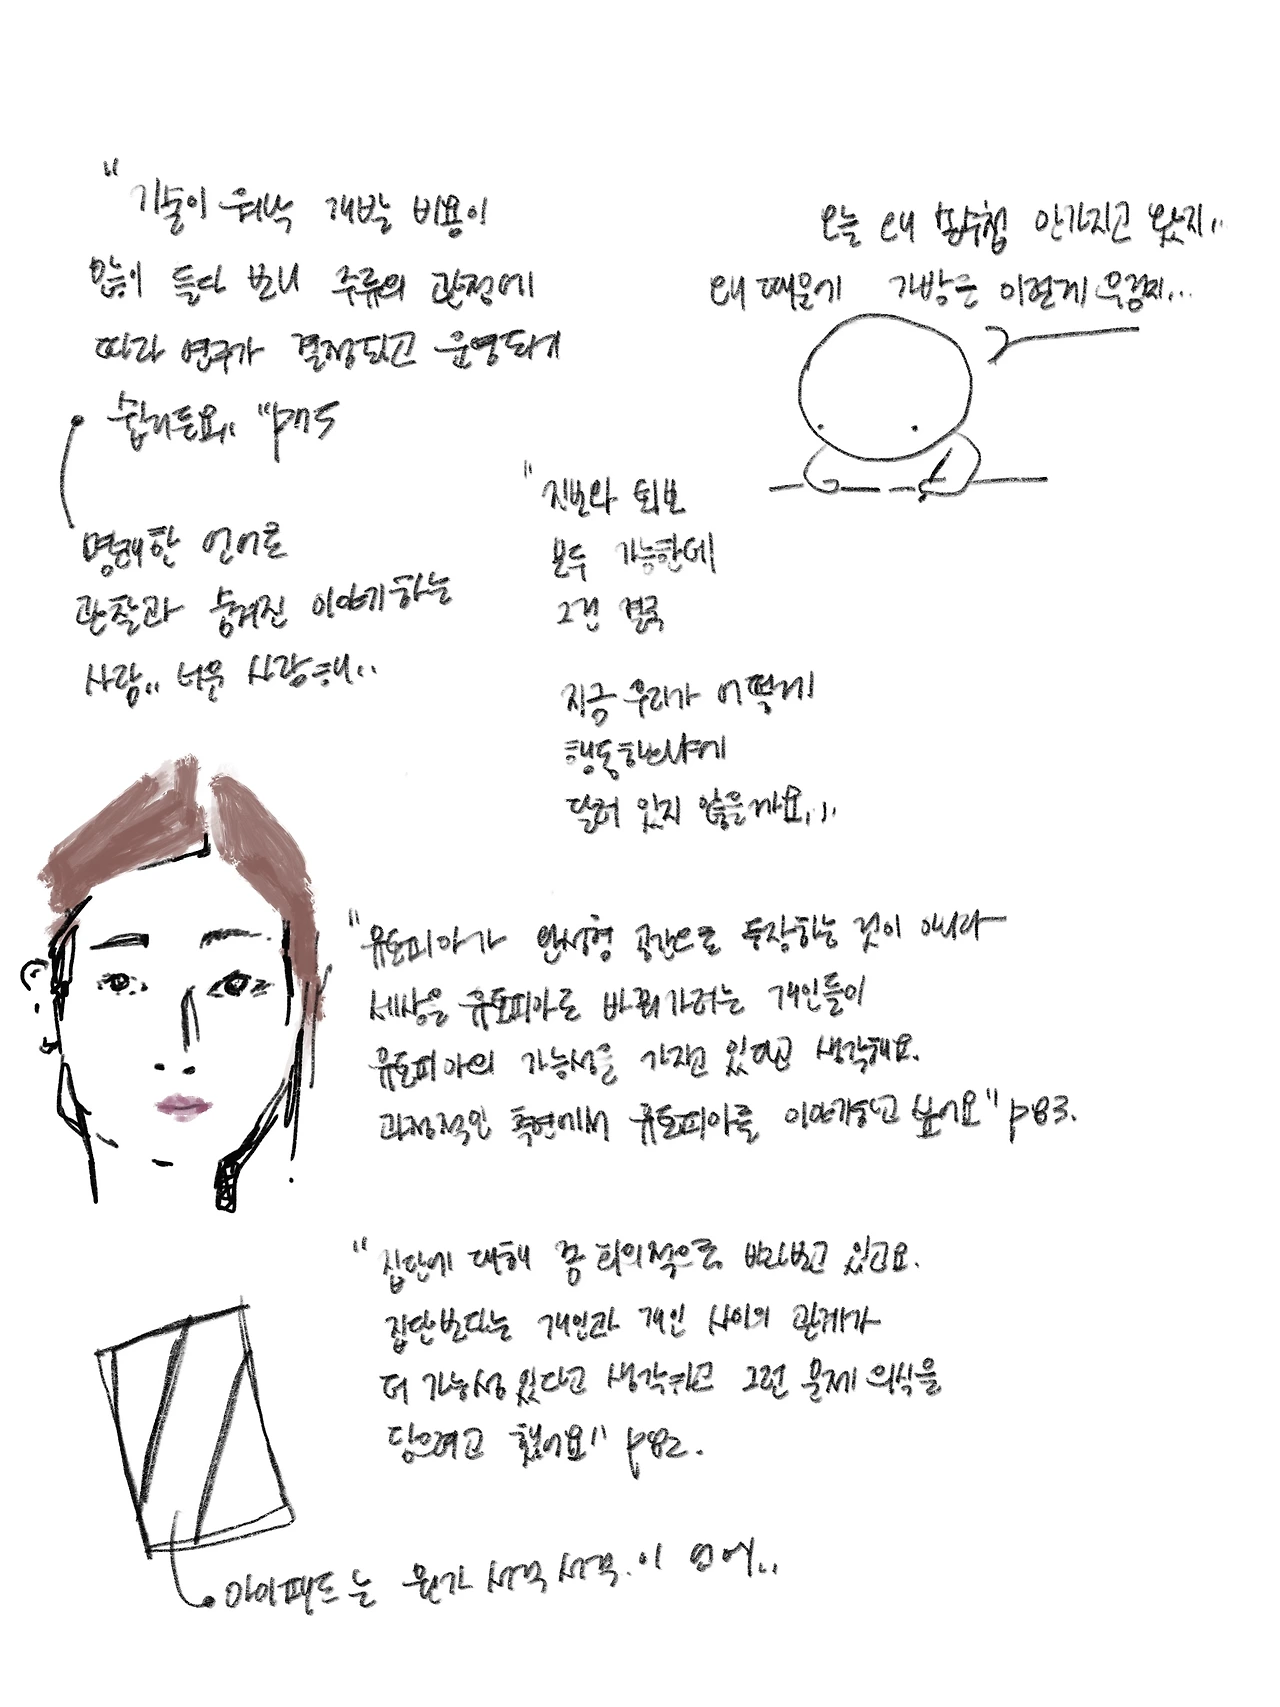 "기술이 워낙 개발 비용이
많이 들다 보니 주류의 관점에
따라 연구가 결정되고 운영되기
쉽거든요.. "p75
명쾌한 언어로
관찰과 숨겨진 이야기하는
사람.. 너무 사랑해..
오늘 왜 수첩 안가지고 왔지..
왜 때문에 가방은 이렇게 무겁찌...
"진보와 퇴보
모두 가능한데
그건 결국
지금 우리가 어떻게
행동하느냐에
달려 있지 않을까요...
"유토피아가 완성형 공간으로 등장하는 것이 아니라
세상을 유토피아로 바꿔가려는 개인들이
유토피아의 가능성을 가지고 있다고 생각해요.
과정적인 측면에서 유토피아를 이야기하고 싶어요" p83.
"집단에 대해 좀 회의적으로 바라보고 있고요.
집단보다는 개인과 개인 사이의 관계가
더 가능성 있다고 생각하고 그런 문제 의식을
담으려고 했어요" p82.
아이패드는 뭔가 서걱서걱.이 없어..